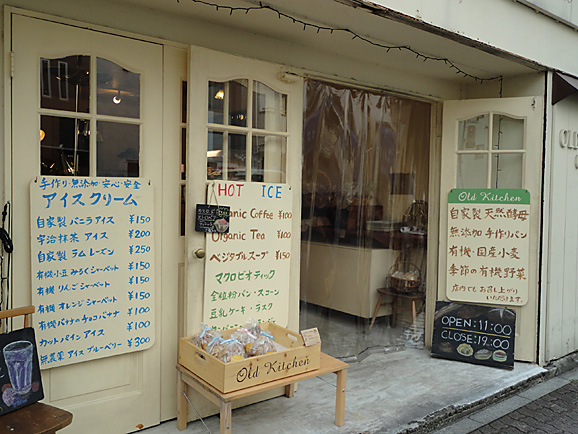 手作り・無添加・安心・安全
アイスクリーム
自家製 バニラアイス ¥150
宇治抹茶 アイス ¥200
自家製 ラムレーズン ¥250
有機小豆みるくシャーベット ¥150
有機りんごシャーベット ¥150
有機オレンジシャーベット ¥150
有機バナナのチョコバナナ ¥100
カットパインアイス ¥100
無農薬 アイス ブルーベリー ¥300
HOT ICE
Organic Coffee ¥100
Organic Tea
ベジタブルスープ ¥150
マクロビオティック
全粒粉パン・スコーン
豆乳ケーキ・ラスク
Old Kitchen
Old Kitchen
自家製 天然酵母
無添加 手作りパン
有機・国産小麦
季節の有機野菜
店内でもお召し上がり
いただけます。
OPEN:11:00
CLOSE:19:00
OLD